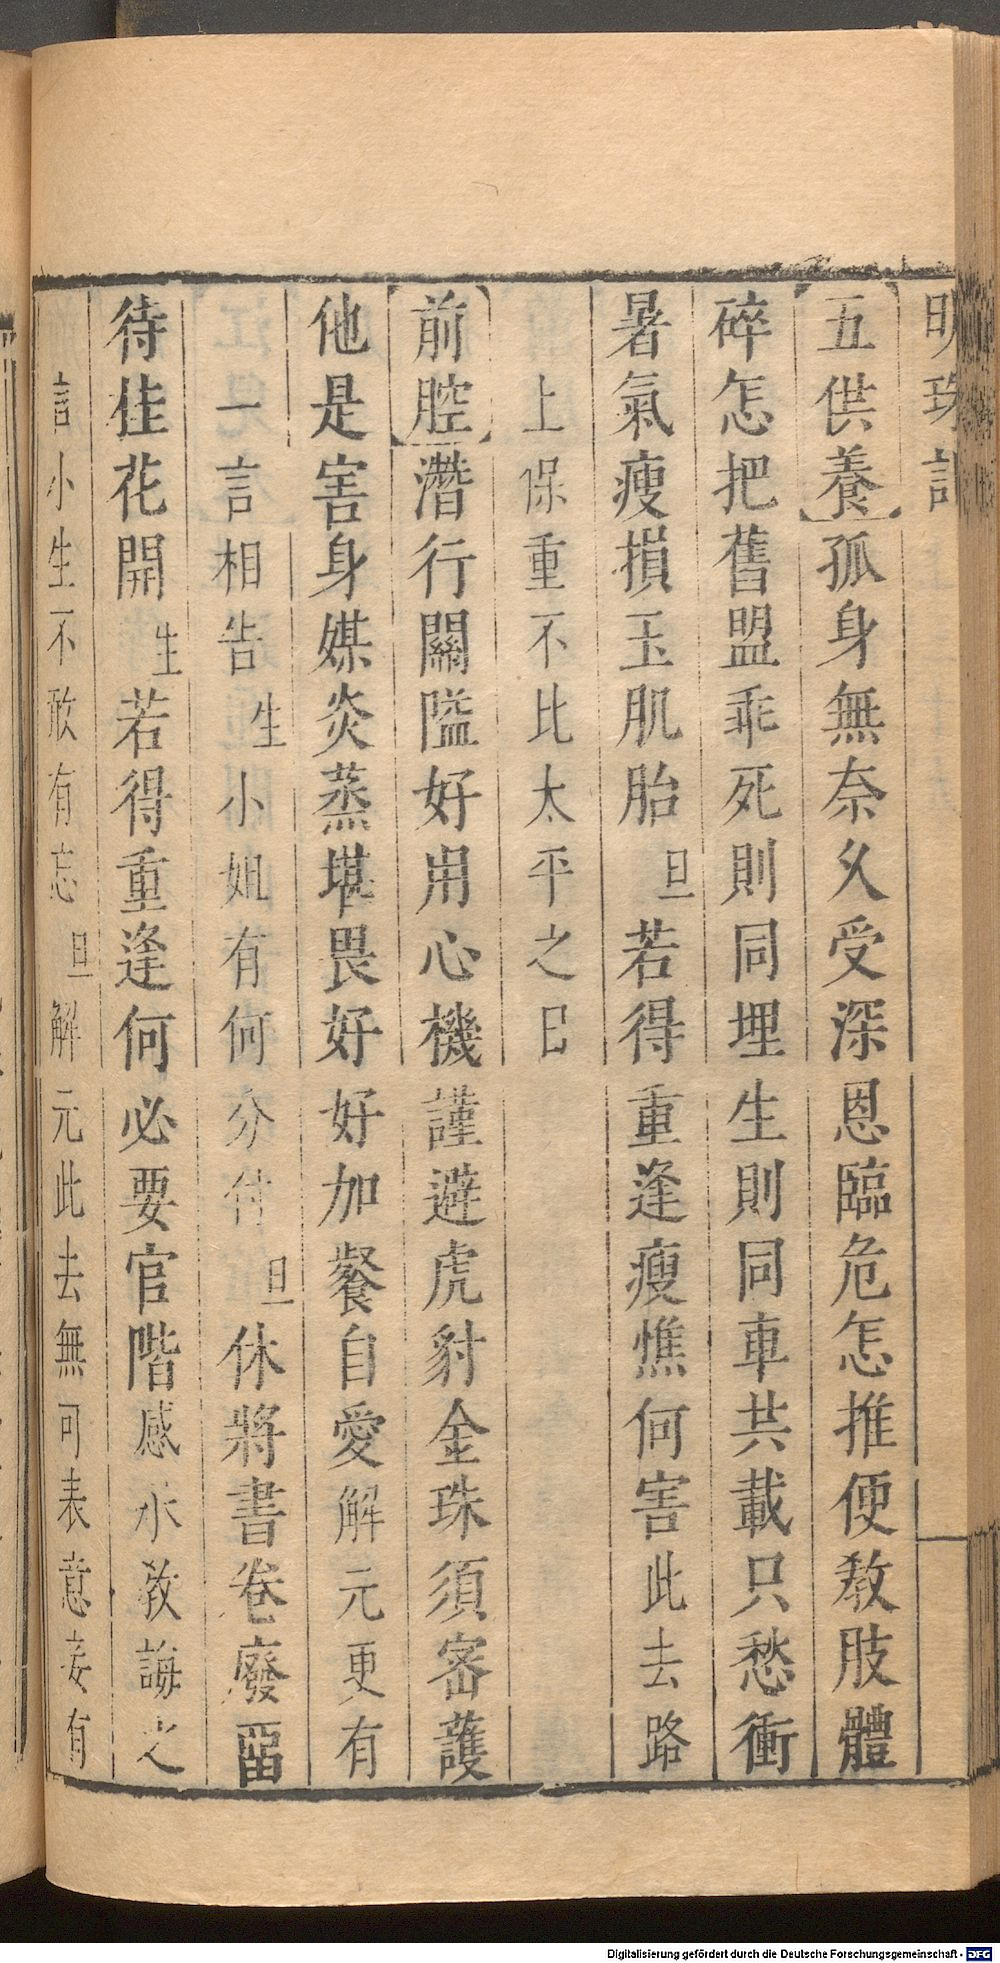 明珠記
五供養孤身無奈久受深恩臨危怎推便教肢體
碎怎把舊盟乖死則同埋生則同車共載只愁衝
暑氣瘦損玉肌胎旦若得重逢瘦憔何害此去路
上保重不比太平之日
前腔潛行關隘好用心機謹避虎豺金珠須密護
他是害身媒炎蒸堪畏好好加餐自愛解元更有
一言相告生小姐有何分付旦休將書卷廢留
待佳花開生若得重逢何必要官階感承教誨之
言小生不敢有忘旦解元此去無可表意妾有
Digitalisierung gefördert durch die Deutsche Forschungsgemeinschaft - DFG